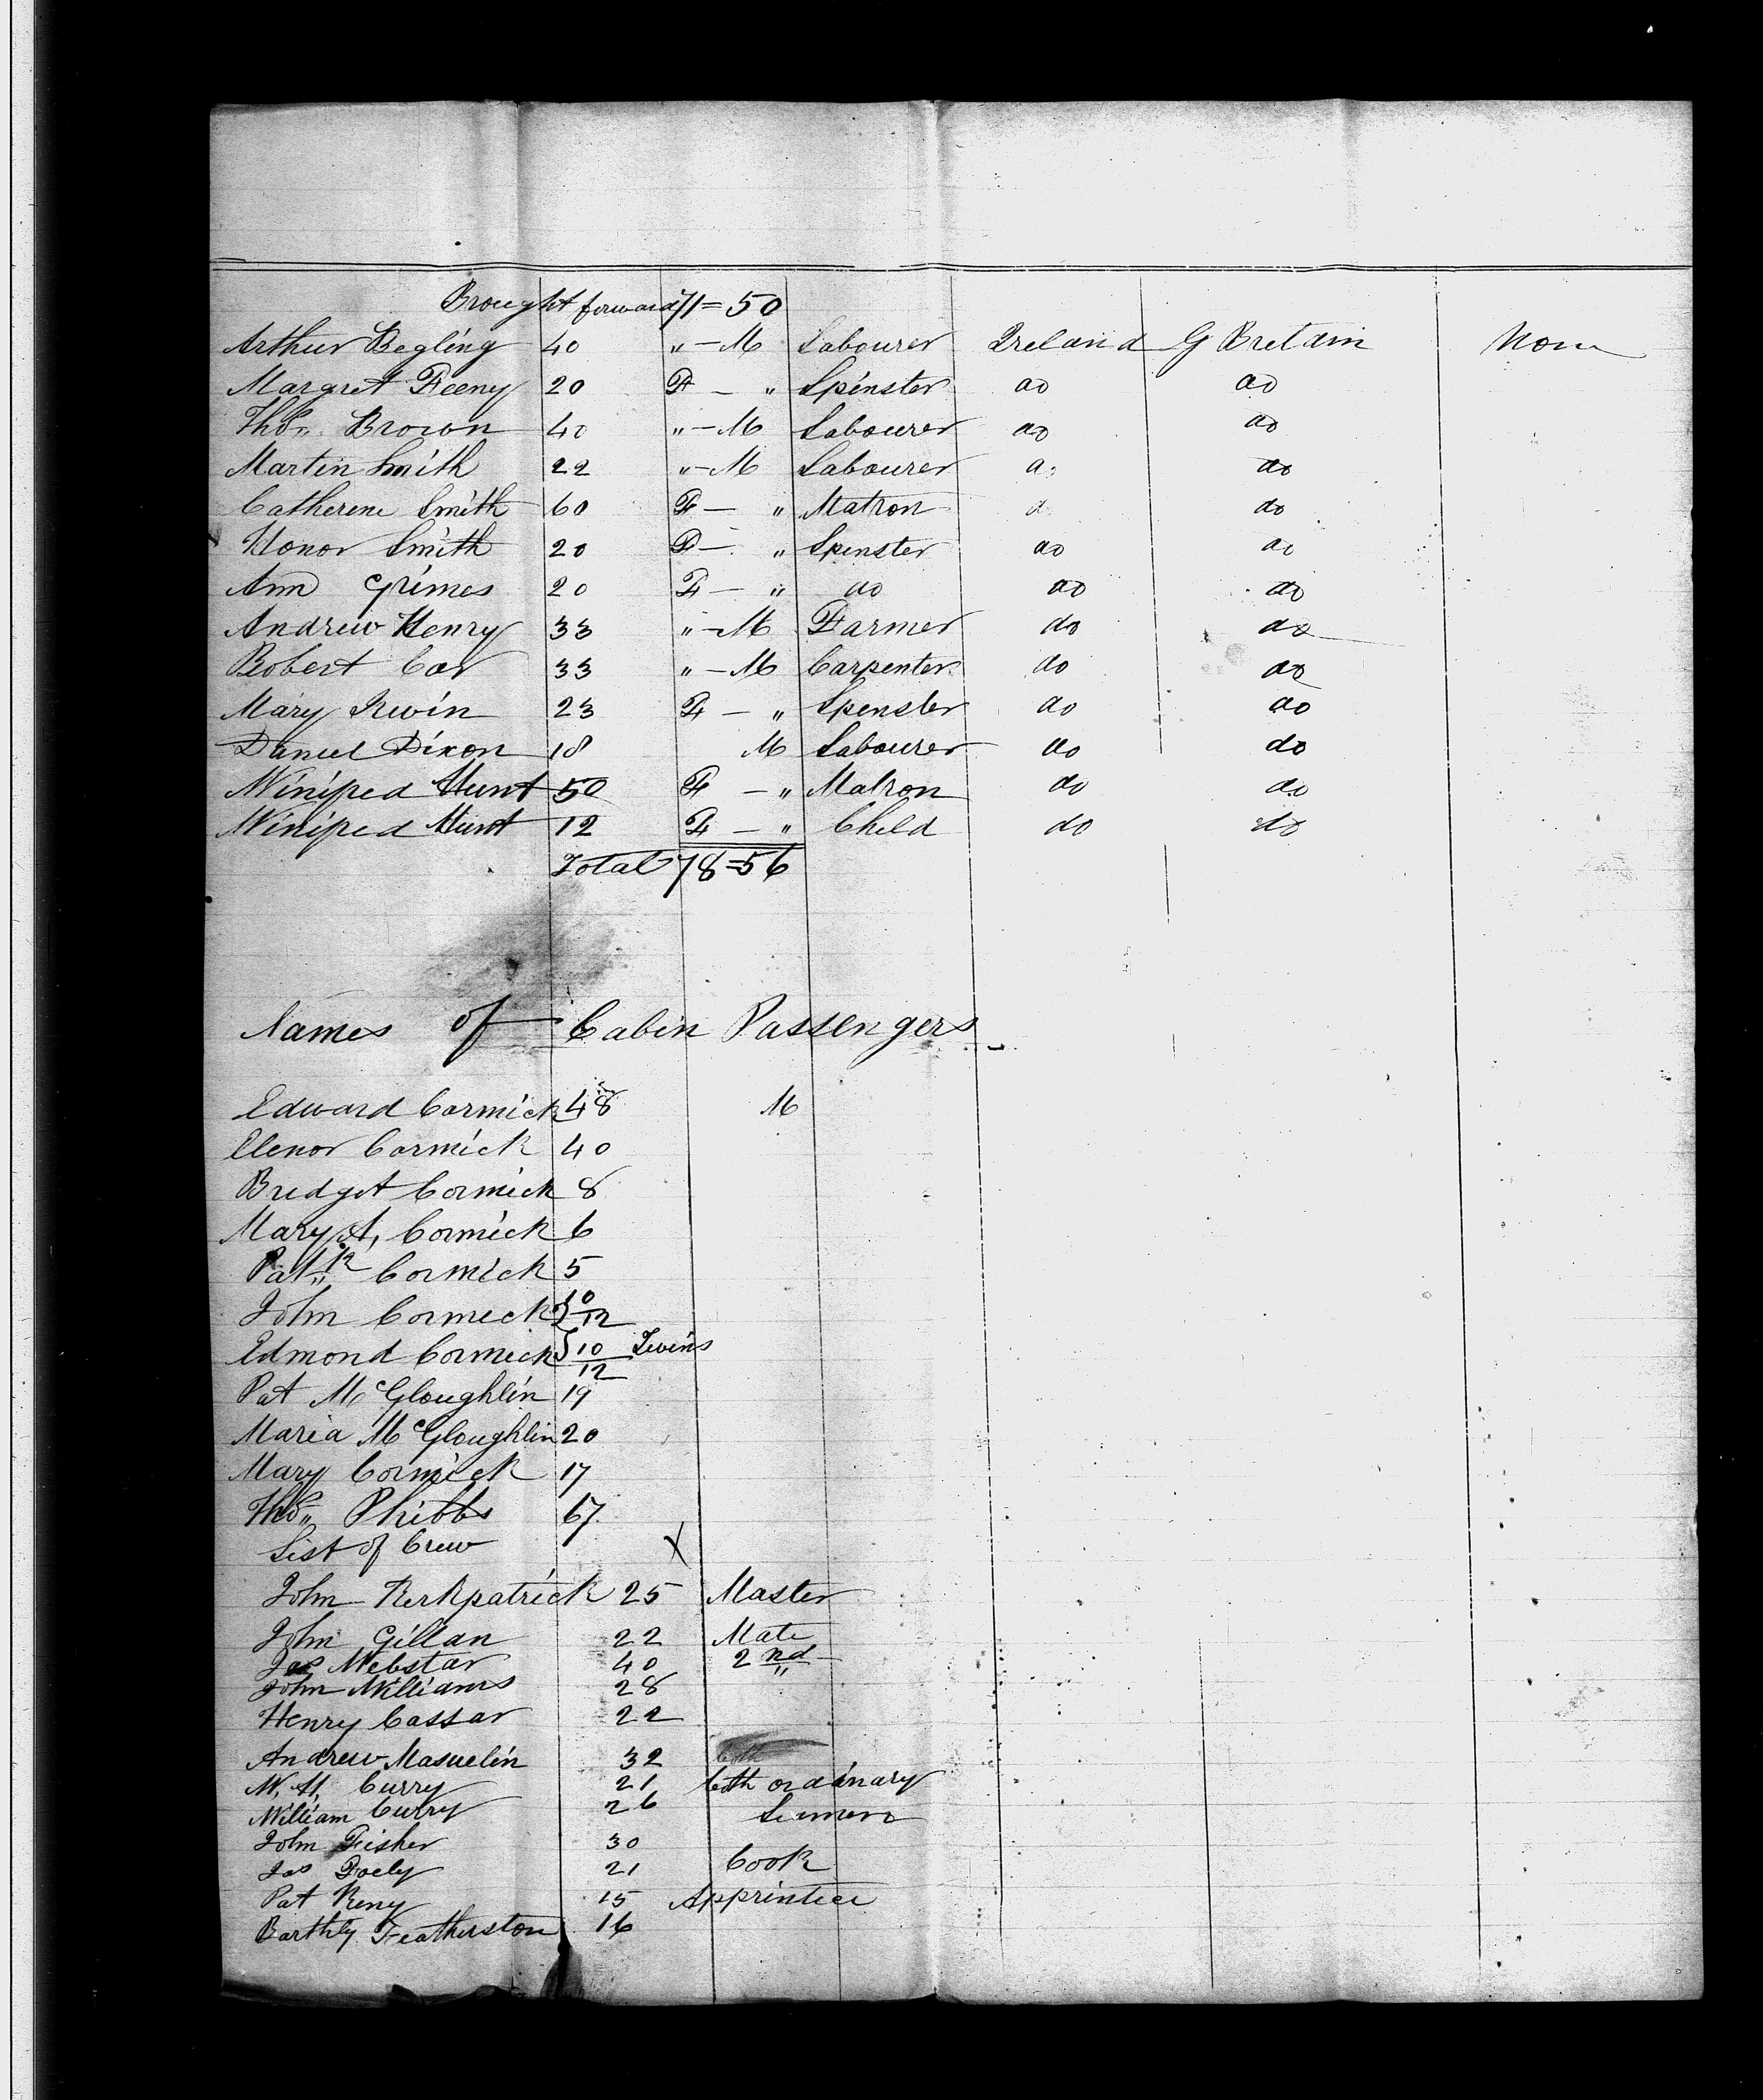 Brought forward 71=50
Arthur Begling 40 " - M Labourer Ireland G Bretain None
Margret Feeny 20 F - " Spinster do do
Thos. Brown 40 " - M Labourer do do
Martin Smith 22 " - M Labourer do do
Catherine Smith 60 F - " Matron do do
Honor Smith 20 F - " Spenster do do
Ann Grimes 20 F - " do do do
Andrew Henry 33 " - M Farmer do do
Robert Cor 33 " - M Carpenter do do
Mary Irwin 23 F - " Spenster do do
Daniel Dixon 18 M Labourer do do
Winifred Hunt 50 F - " Matron do do
Winifred Hunt 12 F - " Cheld do do
Total 78=56
Names of Cabin Passengers
Edward Cormick 48 M
Elenor Cormick 40
Bridget Cormick 8
Mary A, Cormick 6
Patk Cormick 5
John Cormick 10/12
Edmond Cormick 10/12 Twins
Pat McGloughlin 19
Maria McGloughlin 20
Mary Cormick 17
Thos. Phibbs 67
List of Crew X
John Kerkpatrick 25 Master
John Gillan 22 Mate
Jas Webstar 40 2nd
John Williams 28
Henry Cassar 22
Andrew Masuelin 32
W. H. Curry 21 both ordinary
William Curry 26 Semen
John Fisher 30
Jas Foely 21 Cook
Pat Keny 15 Apprintice
Barthly Featherston 16